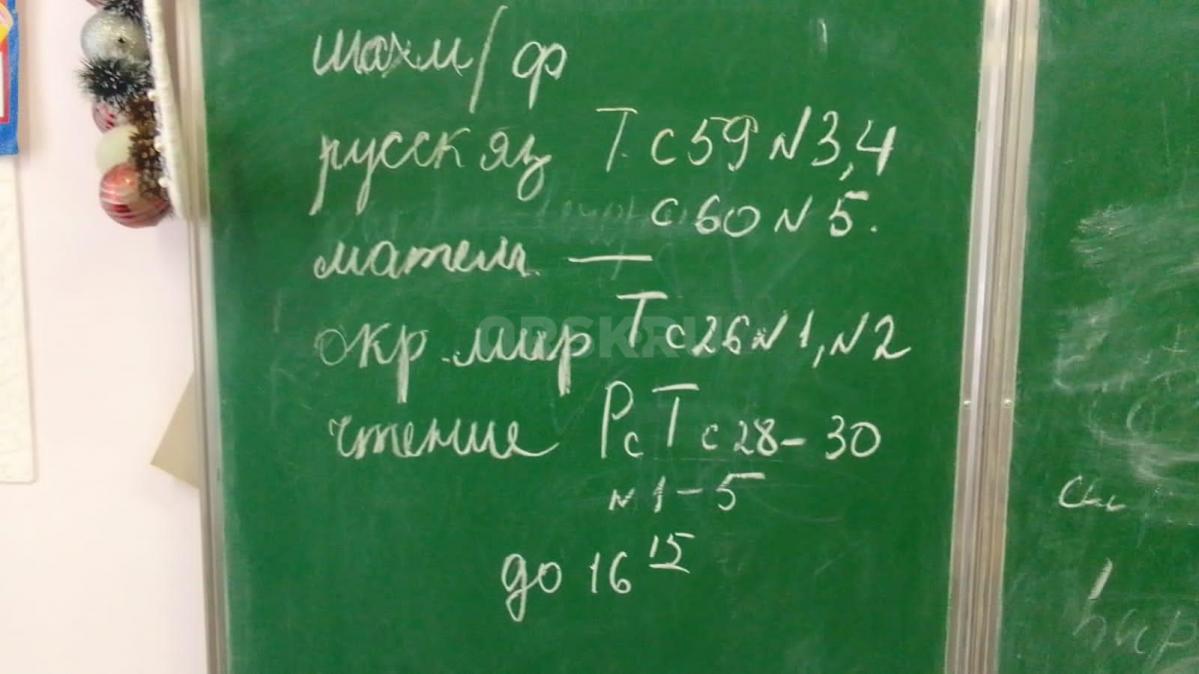 шахм/ф
русск яз Т. с 59 N3,4
с 60 N 5.
матем. —
окр. мир Т с 26 N 1, N 2
чтение РсТ с 28 – 30
N 1 – 5
до 16 15
ORSKRU